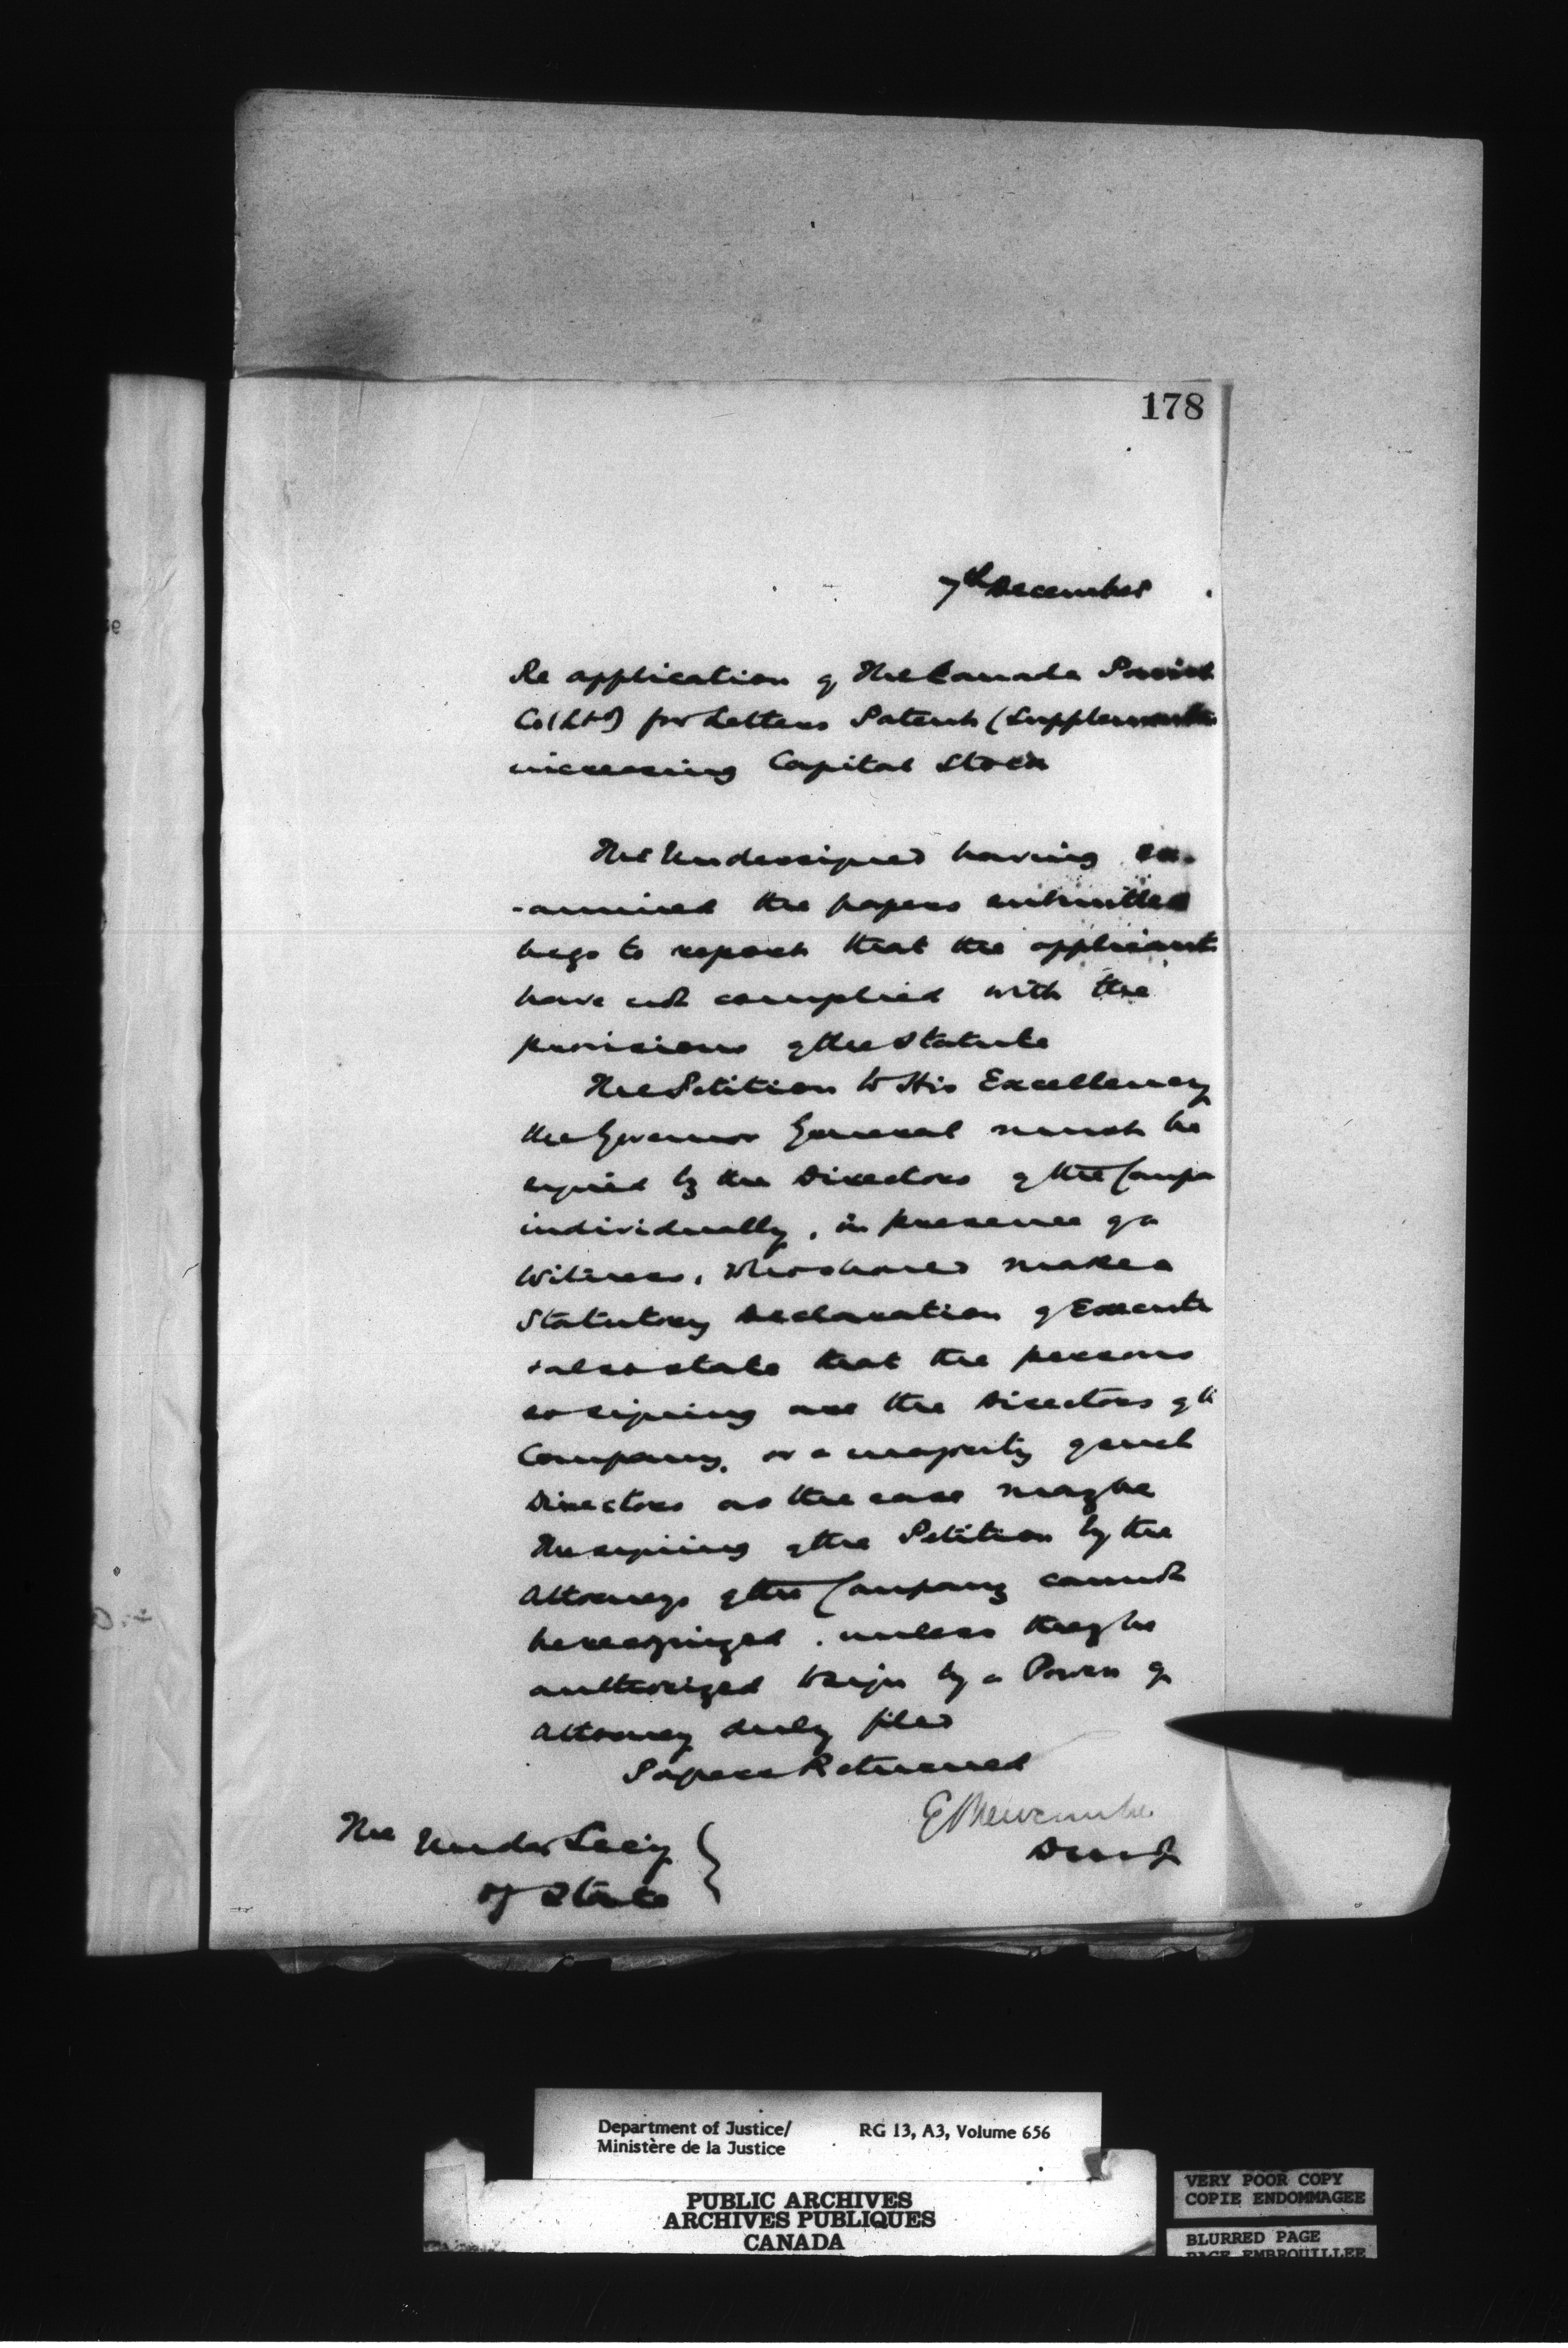 178
7th December
Re application of The Canada
Co (Ltd) for Letters Patent (Supplementa
increasing Capital Stock
The Undersigned having ex-
-amined the papers submitted
begs to report that the applicant
have not complied with the
provisions of the Statute
The Petition to His Excellency
the Governor General must be
signed by the Directors of the Compa
individually, in presence of a
Witness, who should make a
Statutory Declaration of Executi
& also state that the persons
so signing are the Directors of th
Company, or a majority of such
Directors as the case may be
The signing of the Petition by the
Attorneys of the Company cannot
be recognized. unless they be
authorized to sign by a Power of
Attorney duly filed
Papers Returned
E L Newcombe
D M of J
The Under Secy
of State
Department of Justice/
Ministère de la Justice
RG 13, A3, Volume 656
PUBLIC ARCHIVES
ARCHIVES PUBLIQUES
CANADA
VERY POOR COPY
COPIE ENDOMMAGEE
BLURRED PAGE
PAGE EMBROUILLEE